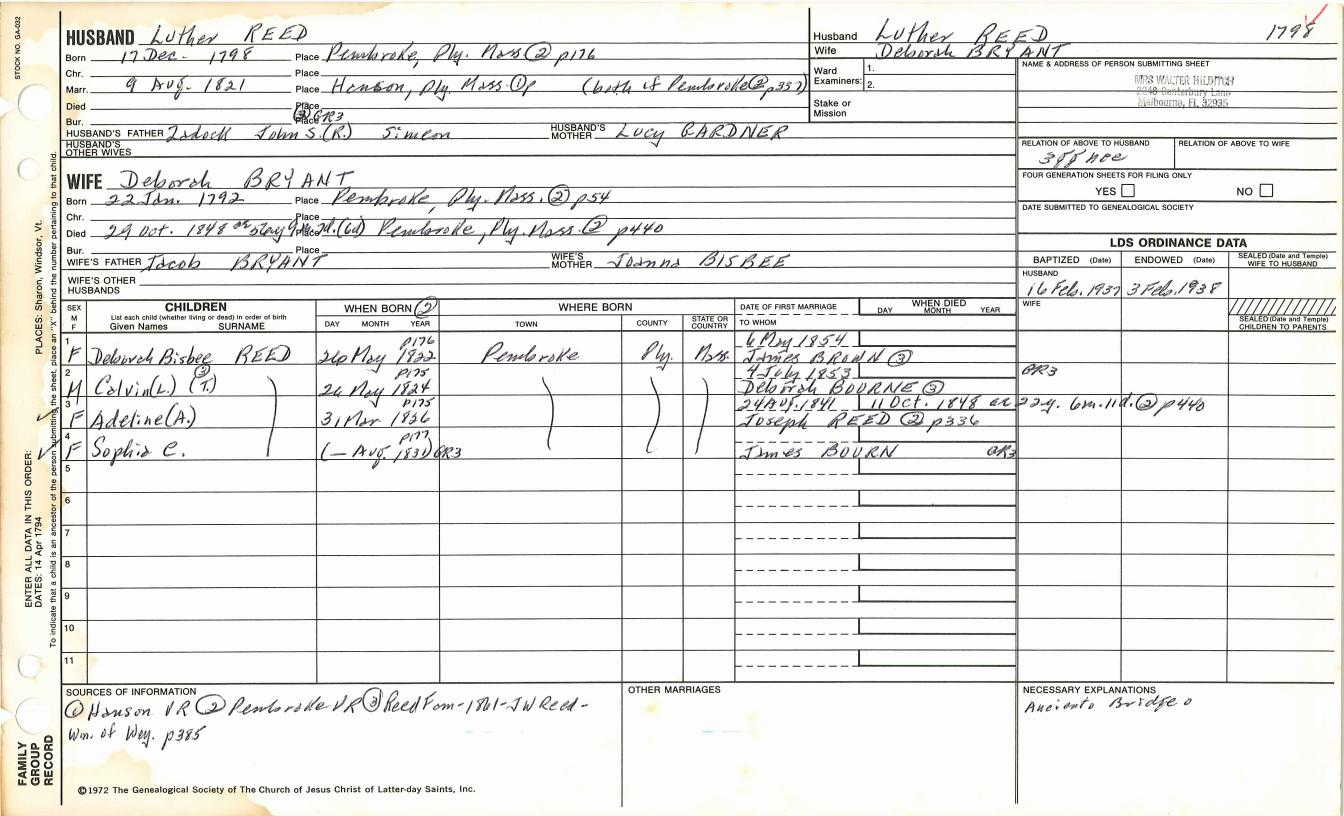 STOCK NO. GA-032
HUSBAND Luther REED
Born 17 Dec. 1798 Place Pembroke, Ply. Mass ② p176
Chr. Place
Marr. 9 Aug. 1821 Place Hanson, Ply Mass. ①p (both of Pembroke ② p337)
Died Place
Bur. Place ③ GR3
HUSBAND'S FATHER Zadock John S.(R.) Simeon HUSBAND'S MOTHER Lucy GARDNER
HUSBAND'S OTHER WIVES
WIFE Deborah BRYANT
Born 22 Jan. 1792 Place Pembroke, Ply. Mass. ② p54
Chr. Place
Died 29 Oct. 1848 Place (Gd) Pembroke, Ply. Mass. ② p440
Bur. Place
WIFE'S FATHER Jacob BRYANT WIFE'S MOTHER Joanna BISBEE
WIFE'S OTHER HUSBANDS
Husband Luther REED 1798
Wife Deborah BRYANT
Ward Examiners: 1.
2.
Stake or Mission
NAME & ADDRESS OF PERSON SUBMITTING SHEET
MRS WALTER HILDITCH
Canterbury Lane
Melbourne, FL 32935
RELATION OF ABOVE TO HUSBAND RELATION OF ABOVE TO WIFE
FOUR GENERATION SHEETS FOR FILING ONLY
YES NO
DATE SUBMITTED TO GENEALOGICAL SOCIETY
LDS ORDINANCE DATA
BAPTIZED (Date) ENDOWED (Date) SEALED (Date and Temple) WIFE TO HUSBAND
HUSBAND
16 Feb. 1937 3 Feb. 1938
WIFE
SEALED (Date and Temple) CHILDREN TO PARENTS
SEX M F CHILDREN WHEN BORN ② WHERE BORN DATE OF FIRST MARRIAGE WHEN DIED
List each child (whether living or dead) in order of birth
Given Names SURNAME DAY MONTH YEAR TOWN COUNTY STATE OR COUNTRY TO WHOM DAY MONTH YEAR
1 p176 6 May 1854
F Deborah Bisbee REED 26 May 1822 Pembroke Ply. Mass. James BROWN ③
2 ③ p175 4 July 1853 GR3
M Calvin(L) (T.) 26 May 1824 Deborah BOURNE ③
3 p175 24 Aug. 1841 11 Oct. 1848 ae 22y. 6m. 11d. ② p440
F Adeline(A.) 31 Mar 1826 Joseph REED ② p336
4 p177
F Sophia C. (— Aug. 1831) GR3 James BOURN GR3
5
6
7
8
9
10
11
SOURCES OF INFORMATION
① Hanson VR ② Pembroke VR ③ Reed Fam-1861-JW Reed-
Wm. of Wey. p385
OTHER MARRIAGES
NECESSARY EXPLANATIONS
Anciento Bridge o
©1972 The Genealogical Society of The Church of Jesus Christ of Latter-day Saints, Inc.
FAMILY GROUP RECORD
ENTER ALL DATA IN THIS ORDER:
DATES: 14 Apr 1794 PLACES: Sharon, Windsor, Vt.
To indicate that a child is an ancestor of the person submitting the sheet, place an "X" behind the number pertaining to that child.